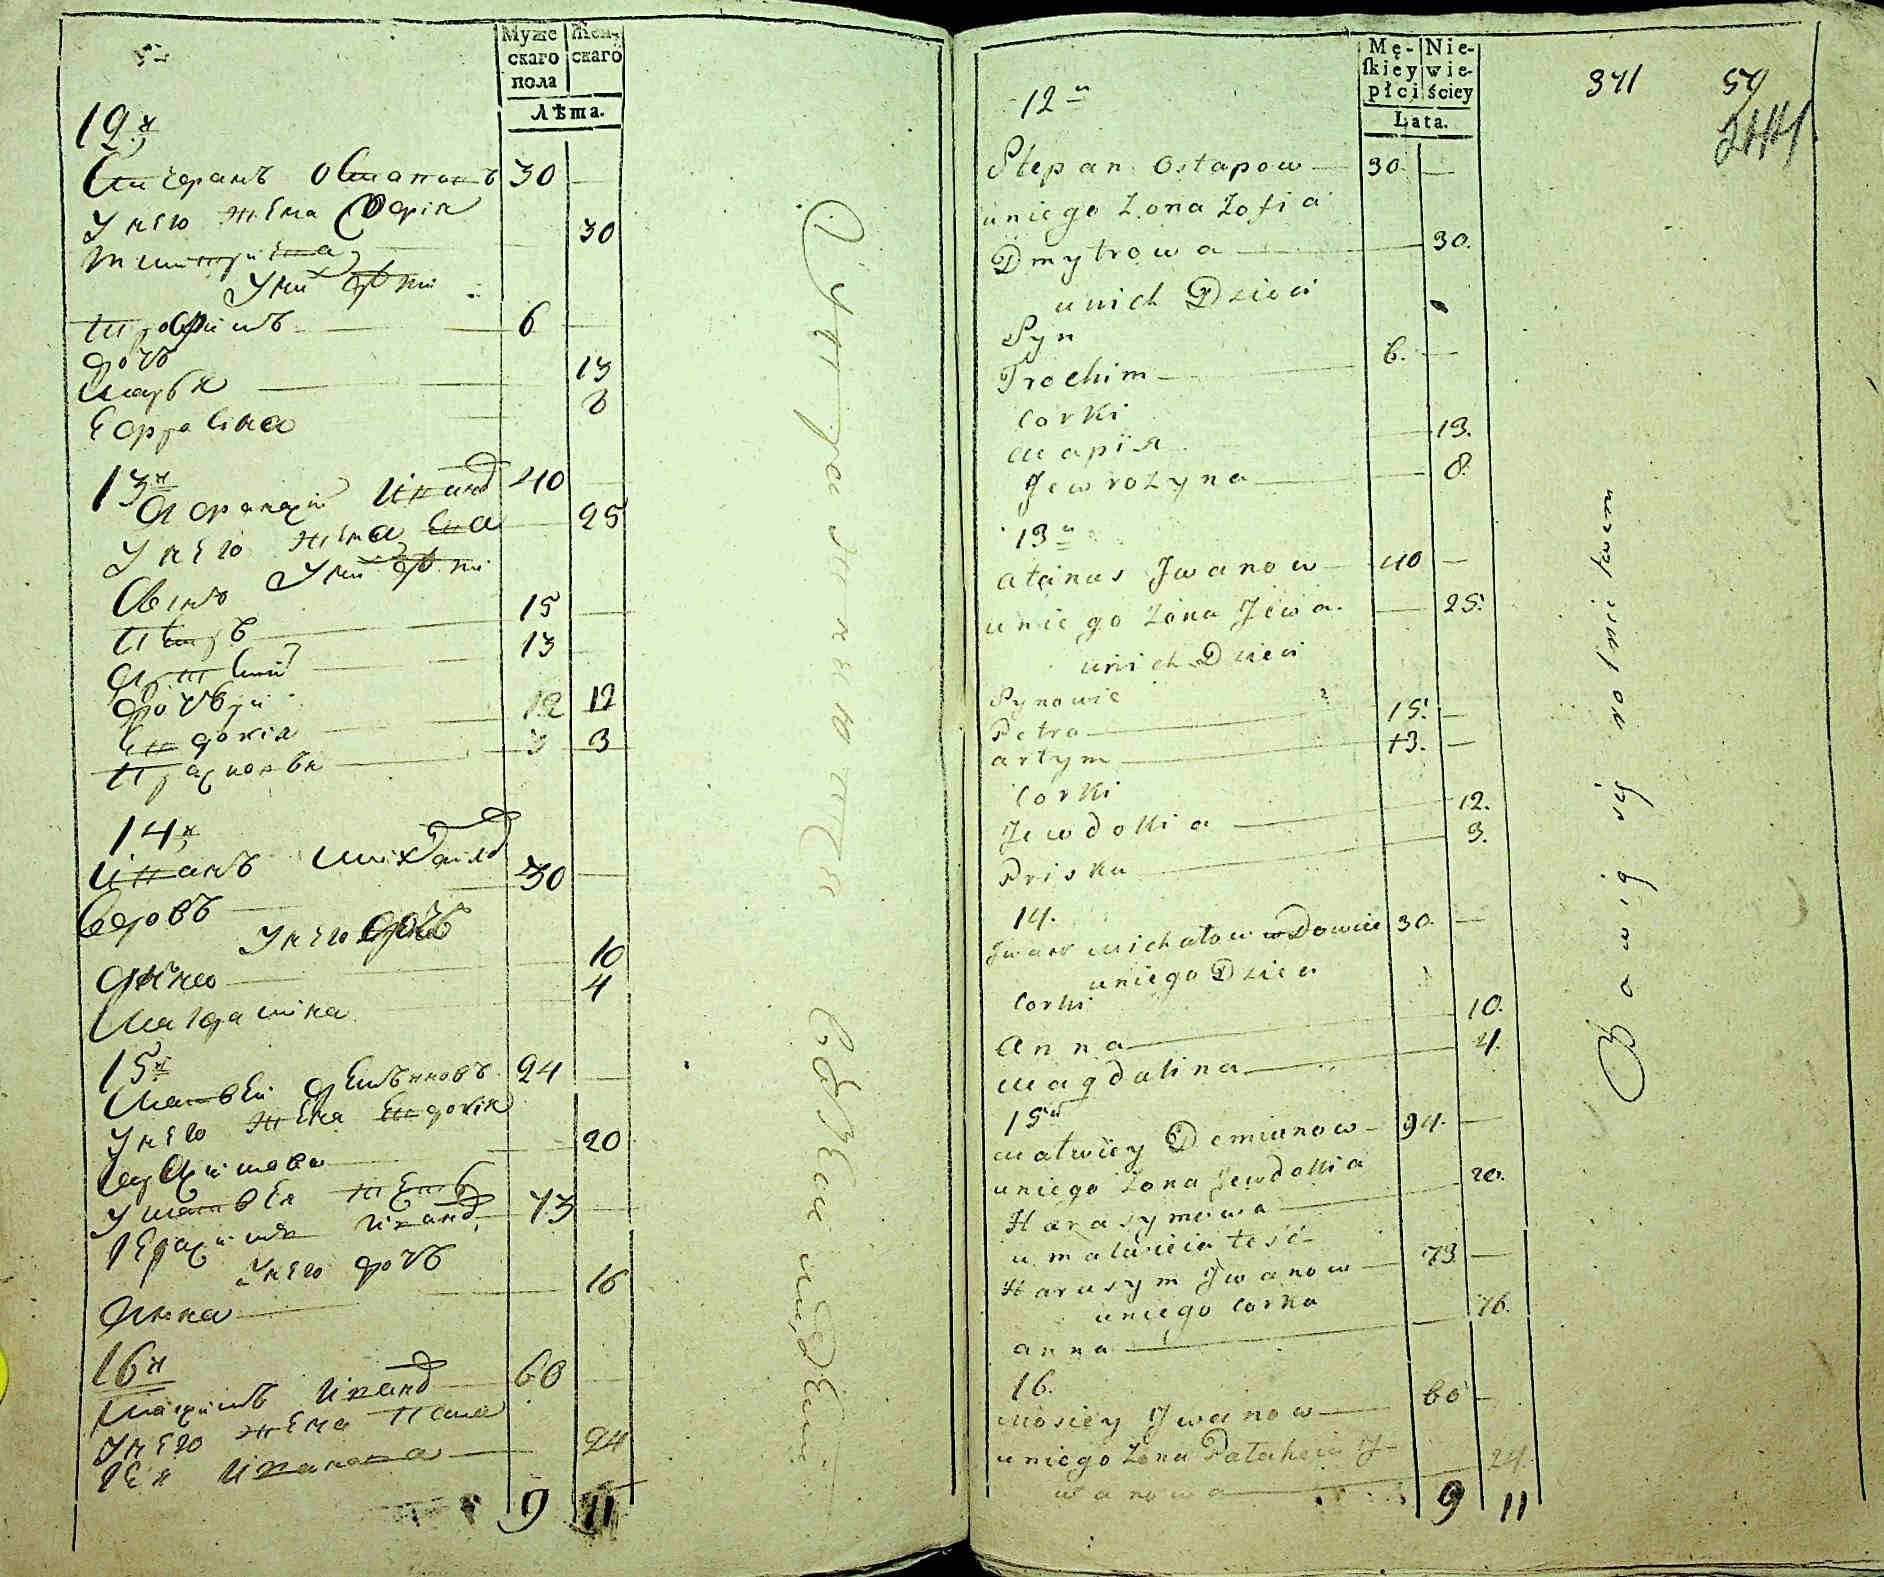 Муже
скаго
пола
Жен-
скаго
Лѣта.
12я
Степанъ Остаповъ 30
У него жена Софія
Дмитриева 30
У них дѣти
Трофимъ 6
дочь
Марья 13
8
13я
Афанасiй Иванов 40
У него жена Ева 25
У них дѣти
Сыны
Петръ 15
Артемiй 13
дочери
Евдокія 12 12
Прасковья 3 3
14я
Иванъ Михайлов 30
Вдовъ
У него дочь
Анна 10
Магдалина 4
15я
Матвей Демьяновъ 24
У него жена Евдокія
Герасимова 20
У Матвея тесть
Герасимъ Иванов 73
У него дочь
Анна 16
16я
Иванов 60
У него жена Пела
гея Иванова 24
9 11
Mę-
skiey
płci
Nie-
wie-
ściey
Lata.
371 59
244.
12u
Stepan Ostapow 30. —
u niego Żona Zofia
Dmytrowa 30.
u nich Dzieci
Syn
Trochim 6. —
Corki
Марія 13.
Jewrozyna 8.
13u
Atanas Jwanow 40 —
u niego Żona Jewa 25.
u nich Dzieci
Synowie
Petro 15. —
Artym 13. —
Corki
Jewdokia 12.
Priska 3.
14.
Jwan Michałow wdowiec 30. —
u niego Dzieci
Corki
Anna 10.
Magdalina 4.
15u
Matwiey Demianow 24. —
u niego Żona Jewdokia
Harasymowa 20.
u Matwieia teść
Harasym Jwanow 73 —
u niego Corka
Anna 16.
16.
Mosiey Jwanow 60 —
u niego Żona Palaheia J-
wanowa 24.
9 11